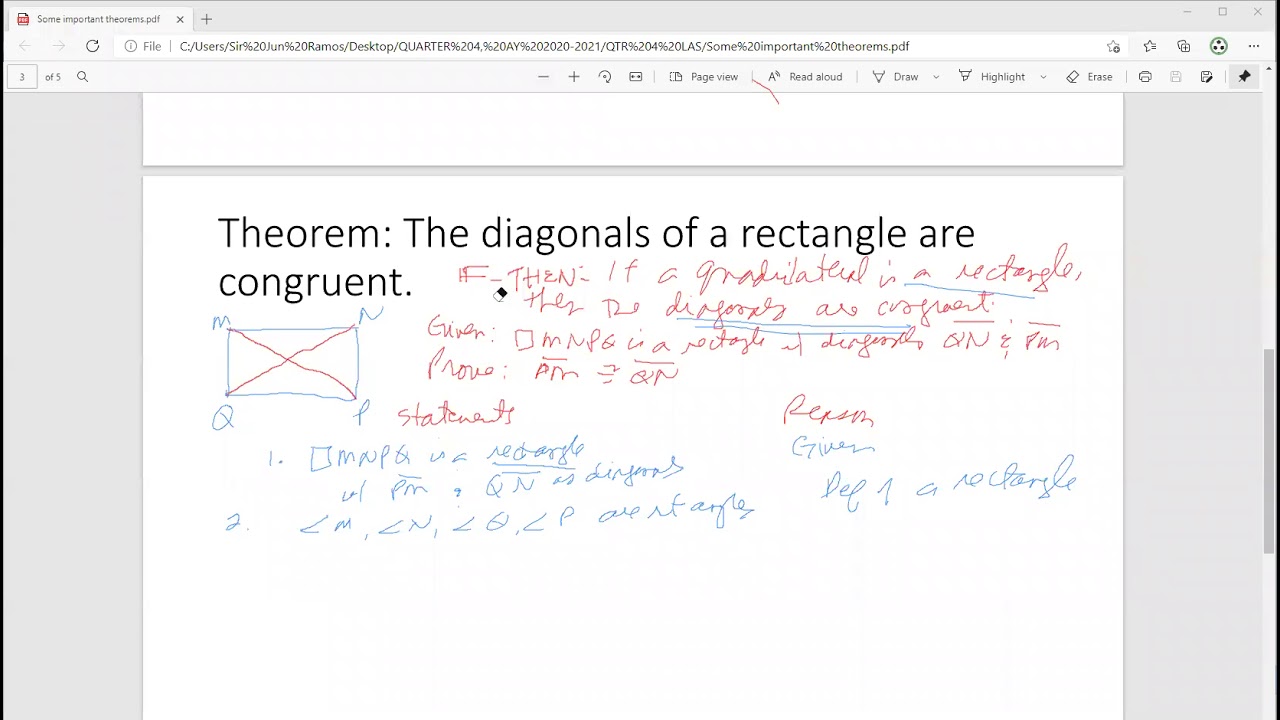 Some important theorems.pdf
File
C:/Users/Sir%20Jun%20Ramos/Desktop/QUARTER%204,%20AY%202020-2021/QTR%204%20LAS/Some%20important%20theorems.pdf
3 of 5
Page view
Read aloud
Draw
Highlight
Erase
Theorem: The diagonals of a rectangle are
congruent.
IF-THEN: If a quadrilateral is a rectangle,
then the diagonals are congruent.
Given: □MNPQ is a rectangle w/ diagonals QN & PM
Prove: PM ≅ QN
M
N
Q
P
Statements
Reason
1. □MNPQ is a rectangle
w/ PM & QN as diagonals
Given
2. ∠M, ∠N, ∠Q, ∠P are rt angles
Def of a rectangle